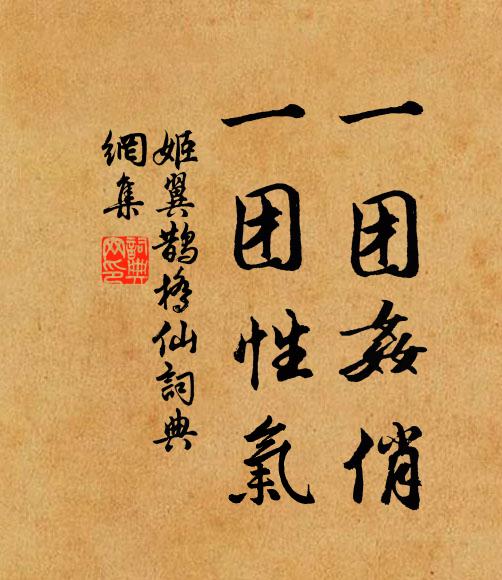 一团姦俏
一团性氣
姬翼鵲橋仙詞典
網集
詞典
网印